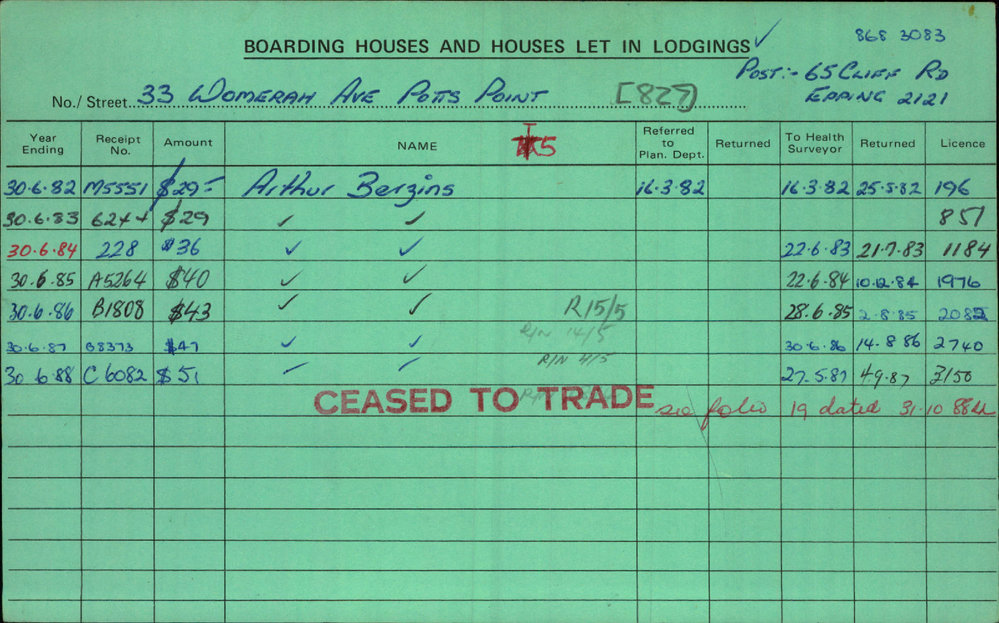 868 3083
BOARDING HOUSES AND HOUSES LET IN LODGINGS ✓
Post:- 65 Cliff Rd
No./Street 33 Womerah Ave Potts Point [827] Epping 2121
Year Ending Receipt No. Amount NAME 5 Referred to Plan. Dept. Returned To Health Surveyor Returned Licence
30.6.82 M5551 $29= Arthur Berzins 16.3.82 16.3.82 25.5.82 196
30.6.83 6244 $29 ✓ ✓ 851
30.6.84 228 $36 ✓ ✓ 22.6.83 21.7.83 1184
30.6.85 A5264 $40 ✓ ✓ 22.6.84 10.12.84 1976
30.6.86 B1808 $43 ✓ ✓ R15/5 28.6.85 2.8.85 2082
R/N 14/5
30.6.87 B8373 $47 ✓ ✓ 30.6.86 14.8.86 2740
R/N 4/5
30.6.88 C6082 $51 ✓ ✓ 27.5.87 4.9.87 3150
CEASED TO TRADE see folio 19 dated 31.10.88